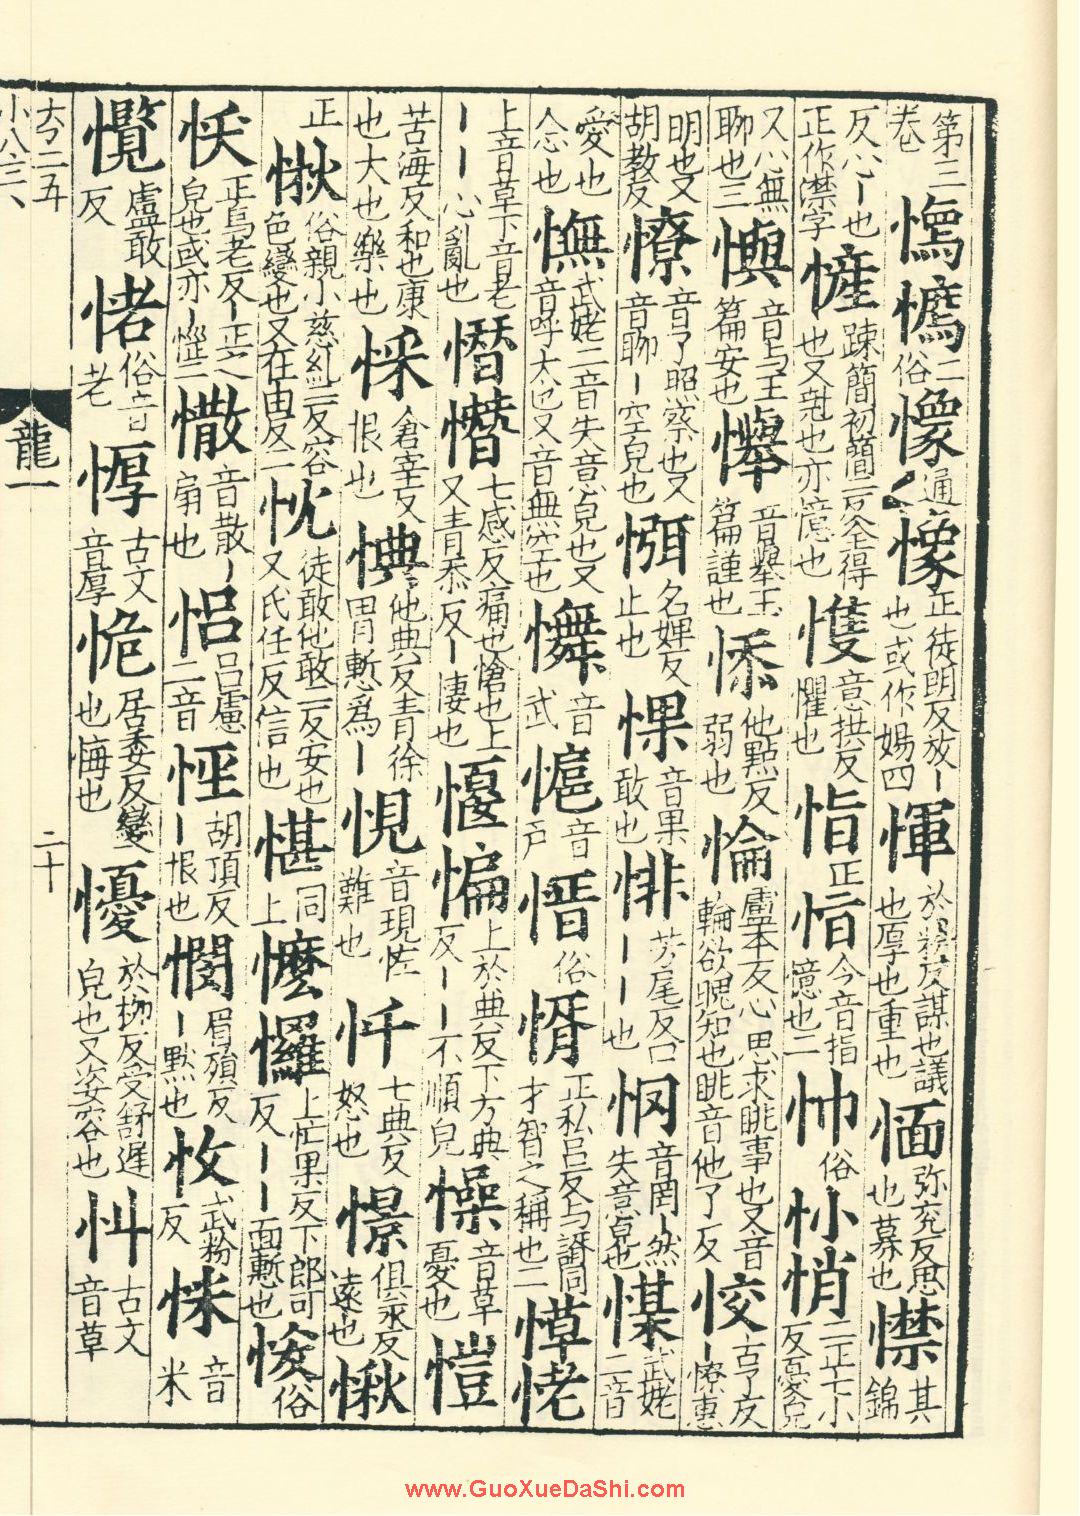 第三卷 二俗 通 正徒朗反放丨也或作婸四 惲 於粉反謀也議也厚也重也 愐 弥兖反思也慕也 㦗 其錦
反心丨也正作㯲字 踈簡初簡二反全得也又㓟也亦憶也 愯 意拱反懼也 恉 正 今音指憶也二 俗 悄 二正七小反憂皃
又心無聊也三 懙 音与玉篇安也 音舉玉篇謹也 他點反弱也 惀 盧本反心思求眺事也又音輪欲知也眺音他了反 恔 古了反丨憭惠
明也又胡教反 憭 音了照察也又音聊丨空皃也 名婢反止也 惈 音果敢也 悱 芳尾反口丨丨也 音罔丨然失意皃也 武姥二音
愛也念也 憮 武姥二音失意皃也又音呼大也又音無空也 音武 音戶 俗 正私吕反与諝同才智之稱也二 愺恅
上音草下音老丨丨心亂也 憯憯 七感反痛也愴也上又青忝反丨悽也 愝惼 上於典反下方典反丨丨不順皃 懆 音草憂也 愷
苦海反和也康也大也樂也 倉宰反恨也 他典反青徐胃慙爲丨 悓 音現難也 忏 七典反怒也 憬 俱永反遠也 愀
正 俗親小慈糺二反容色變也又在由反二 忱 徒敢他敢二反安也又氏任反信也 愖 同上 懡㦬 上忙果反下郎可反丨丨面慙也 俗
正烏老反丨正之皃也或亦丨二 音散丨扇也 吕慮二音 胡頂反丨恨也 憫 眉殞反丨默也 忟 武粉反 音米
盧敢反 俗音老 古文音厚 恑 居委反變也悔也 懮 於柳反受舒遅皃也又姿容也 古文音草
龍一
二十
www.GuoXueDaShi.com